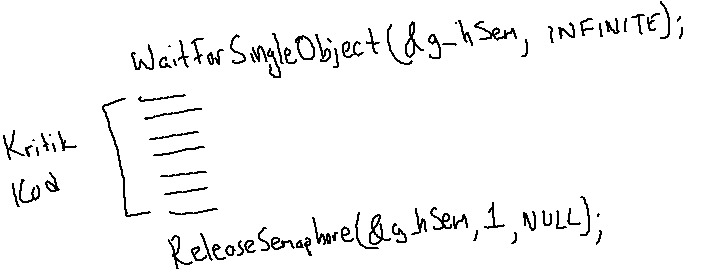 WaitForSingleObject(&g_hSem, INFINITE);
Kritik
Kod
ReleaseSemaphore(&g_hSem, 1, NULL);